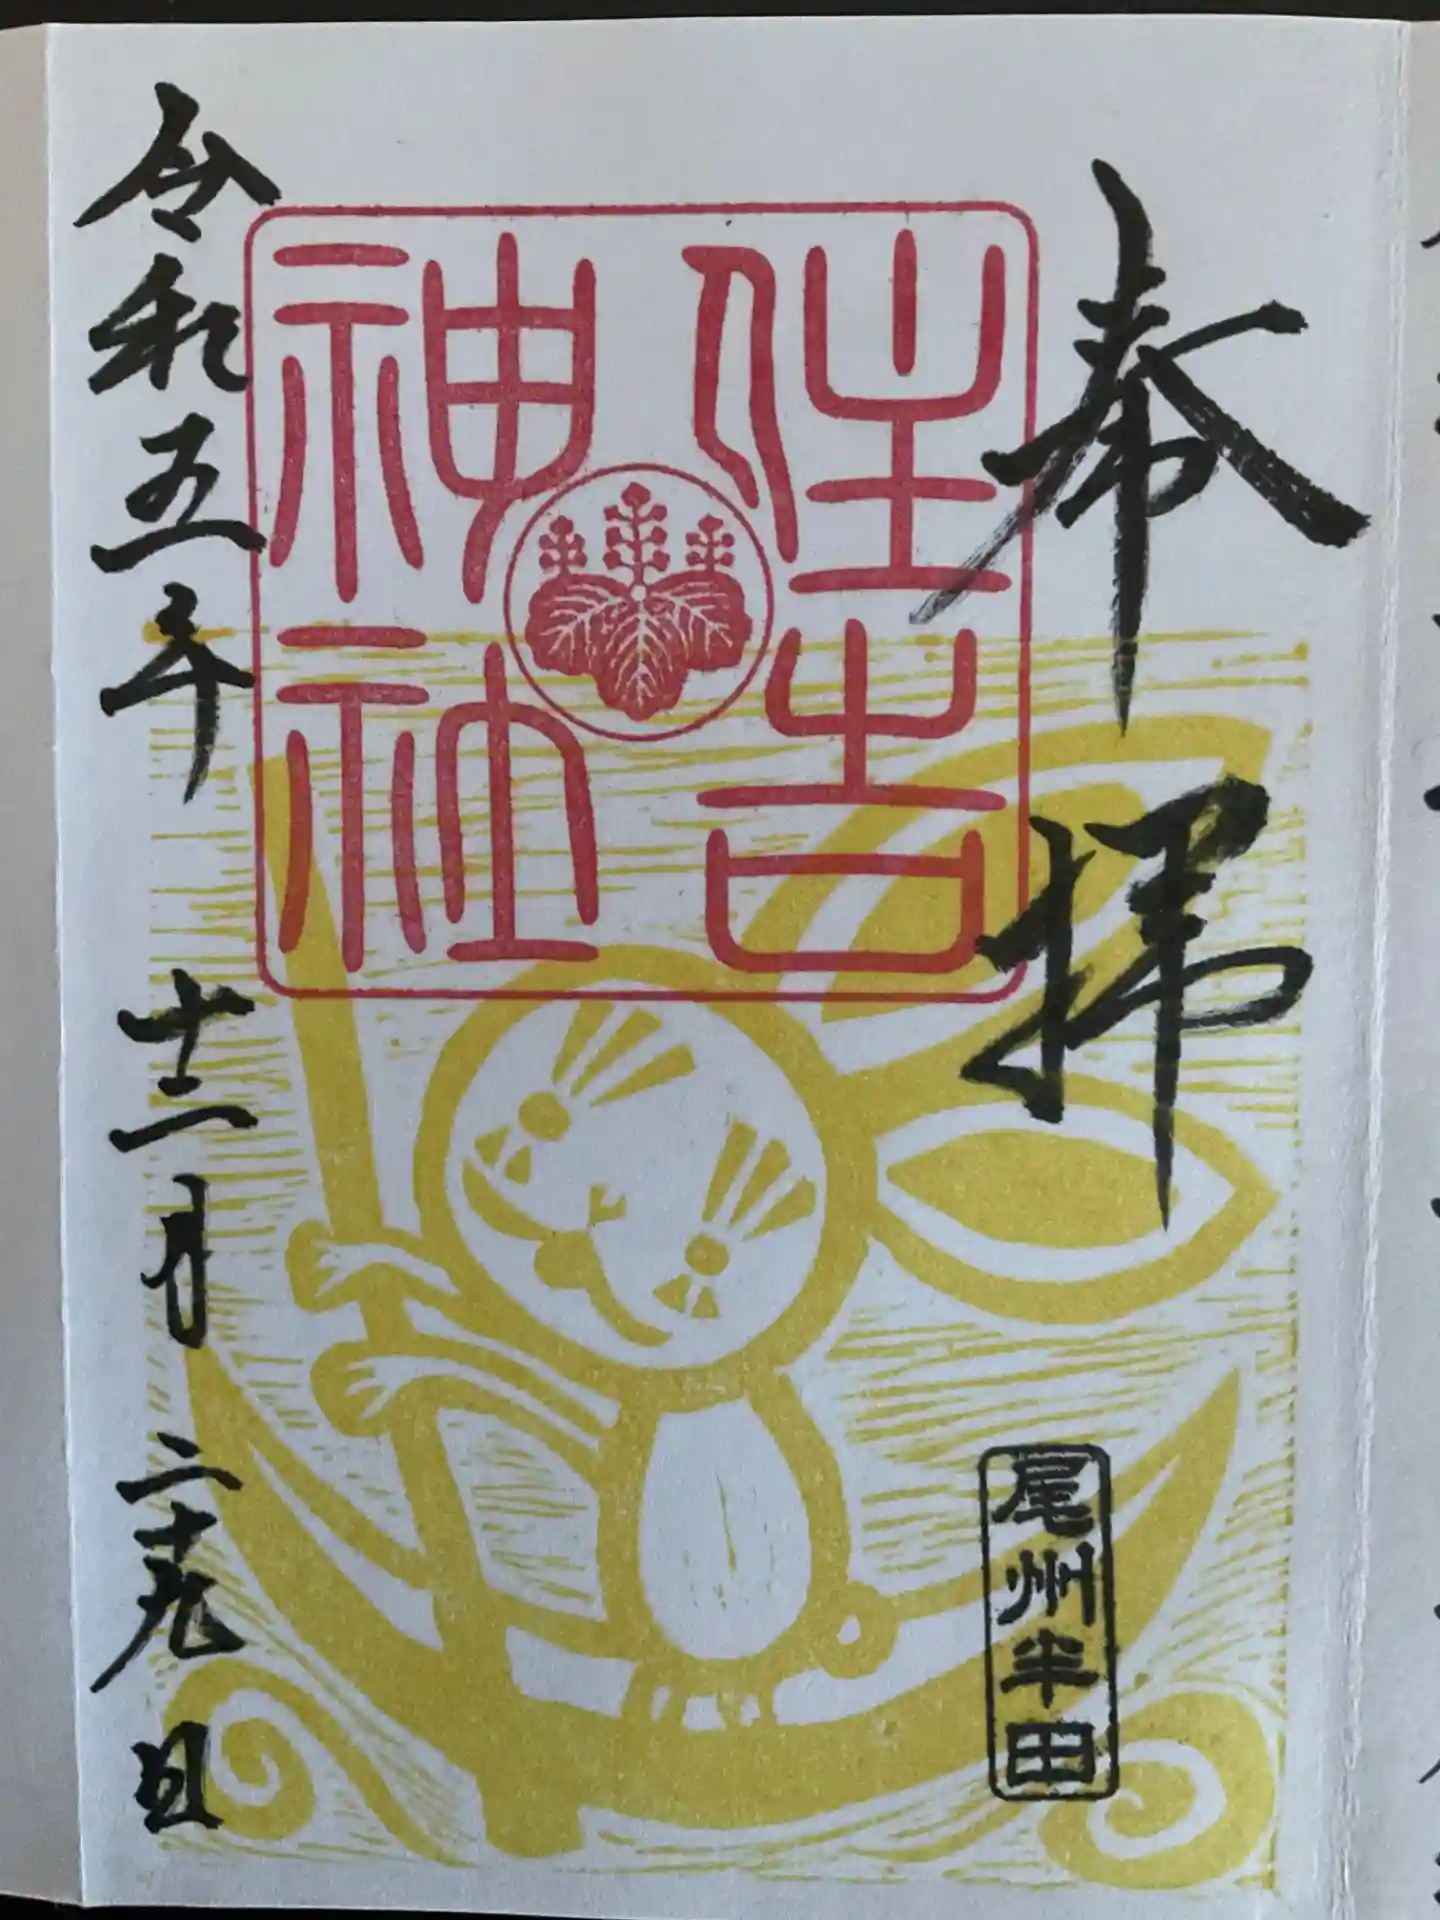 奉拝
住吉
神社
尾州半田
令和五年十二月二十九日